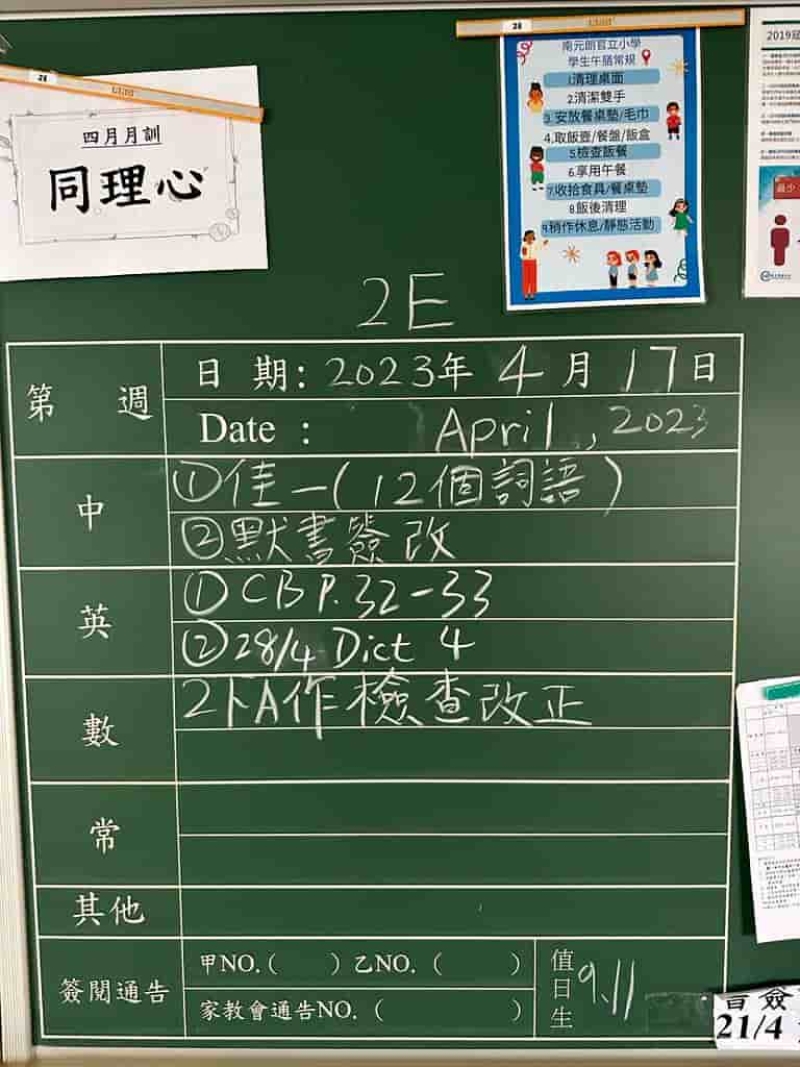 28
四月月訓
同理心
28
南元朗官立小學
學生午膳常規
1.清理桌面
2.清潔雙手
3.安放餐桌墊/毛巾
4.取飯壺/餐盤/飯盒
5.檢查飯餐
6.享用午餐
7.收拾食具/餐桌墊
8.飯後清理
9.稍作休息/靜態活動
2019冠
最少
2E
第 週
日 期: 2023年 4 月 17日
Date : April , 2023
中
①佳一(12個詞語)
②默書簽改
英
①CB P.32-33
②28/4 Dict 4
數
2下A作檢查改正
常
其他
簽閱通告
甲NO.( ) 乙NO. ( )
家教會通告NO. ( )
值日生
9.11
簽
21/4